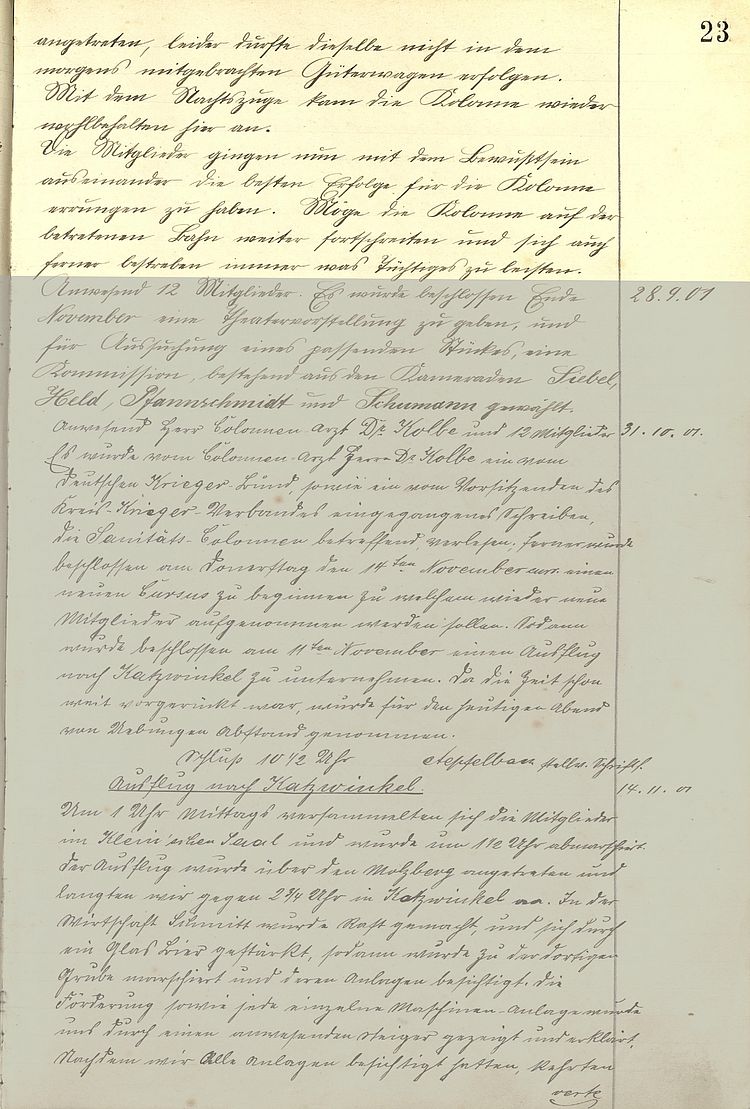 23
angetreten, leider durfte dieselbe nicht in dem
morgens mitgebrachten Güterwagen erfolgen.
Mit dem Nachtszuge kam die Kolonne wieder
wohlbehalten hier an.
Die Mitglieder gingen nun mit dem Bewußtsein
auseinander die besten Erfolge für die Kolonne
errungen zu haben. Möge die Kolonne auf der
betretenen Bahn weiter fortschreiten und sich auch
ferner bestreben immer was Tüchtiges zu leisten.
Anwesend 12 Mitglieder. Es wurde beschlossen Ende 28.9.01
November eine Theatervorstellung zu geben, und
für Aussuchung eines passenden Stückes, eine
Kommission, bestehend aus den Kameraden Siebel,
Held, Pfannschmidt und Schumann gewählt.
Anwesend Herr Colonnen-Arzt Dr. Kolbe und 12 Mitglieder 31.10.01.
Es wurde vom Colonnen-Arzt Herrn Dr. Kolbe ein vom
deutschen Krieger-Bund, sowie ein vom Vorsitzenden des
Kreis-Krieger-Verbandes eingegangenes Schreiben,
die Sanitäts-Colonnen betreffend, verlesen; ferner wurde
beschlossen am Donerstag den 14ten November einen
neuen Cursus zu beginnen zu welchem wieder neue
Mitglieder aufgenommen werden sollen. Sodann
wurde beschlossen am 11ten November einen Ausflug
nach Katzwinkel zu unternehmen. Da die Zeit schon
weit vorgerückt war, wurde für den heutigen Abend
von Uebungen Abstand genommen.
Schluß 10 1/2 Uhr Aepfelbach stellv. Schriftf.
Ausflug nach Katzwinkel. 14.11.01
Um 1 Uhr Mittags versammelten sich die Mitglieder
im Klein'schen Saal und wurde um 1 1/2 Uhr abmarschiert.
Der Ausflug wurde über den Molzberg angetreten und
langten wir gegen 2 3/4 Uhr in Katzwinkel an. In der
Wirtschaft Schmitt wurde Rast gemacht, und sich durch
ein Glas Bier gestärkt, sodann wurde zu der dortigen
Grube marschiert und deren Anlagen besichtigt. Die
Förderung sowie jede einzelne Maschinen-Anlage wurde
uns durch einen anwesenden Steiger gezeigt und erklärt.
Nachdem wir Alle Anlagen besichtigt hatten, kehrten
verte